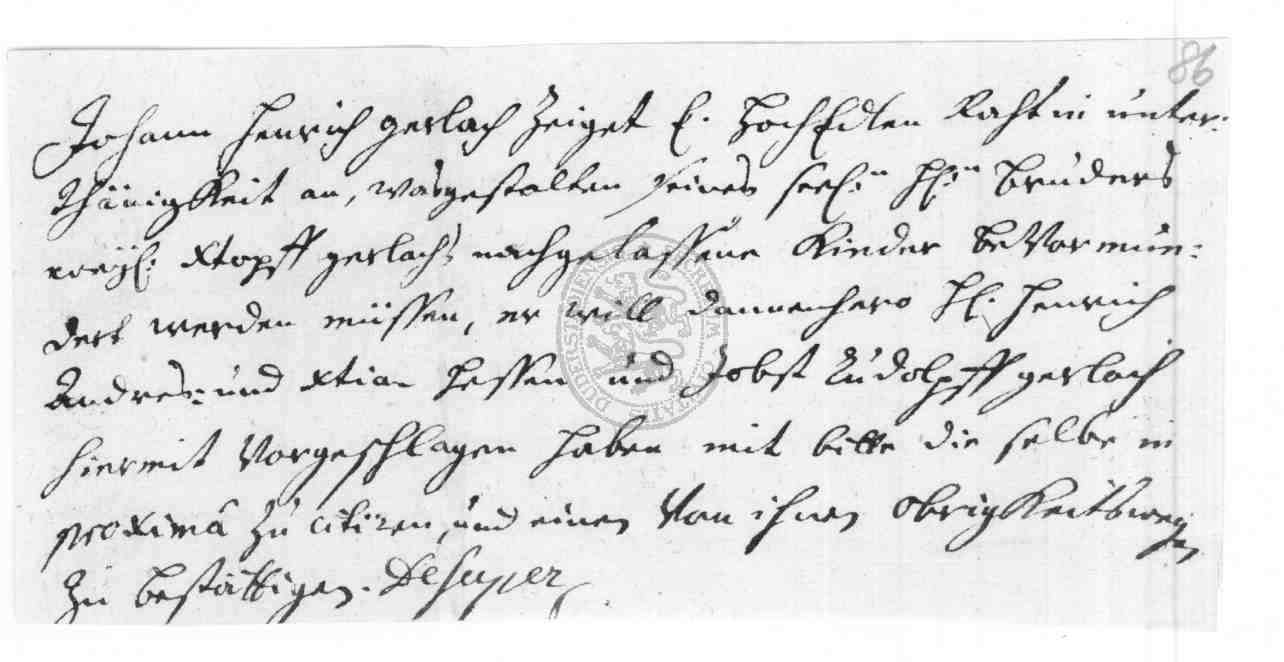 86
Johann Henrich Gerlach Zeiget E. HochEdlen Raht in unter:
thänigkeit an, wasgestalten seines seel:n H:n Bruders
Xtopff Gerlachs nachgelassene Kinder beVormün:
dert werden müssen, er will dannenhero H. Henrich
Andres und Xtian Hessen und Jobst Rudolpff Gerlach
hiermit Vorgeschlagen haben mit bitte die selbe in
proximâ zu citiren, und einen Von ihnen Obrigkeitswegen
zu bestättigen. Desuper